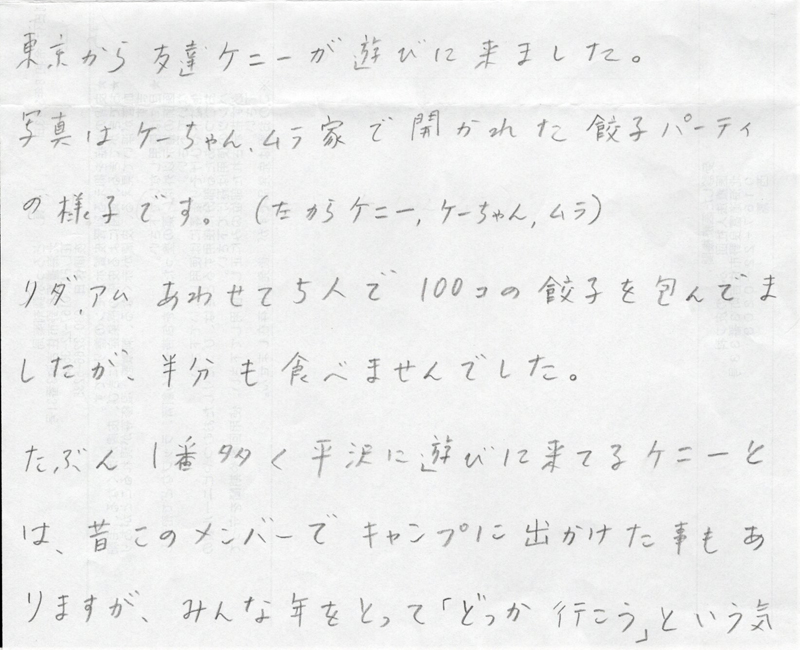 東京から友達ケニーが遊びに来ました。
写真はケーちゃん、ムラ家で開かれた餃子パーティ
の様子です。(左からケニー、ケーちゃん、ムラ)
リダ、アム あわせて5人で100コの餃子を包んでま
したが、半分も食べませんでした。
たぶん1番多く平沢に遊びに来てるケニーと
は、昔このメンバーでキャンプに出かけた事もあ
りますが、みんな年をとって「どっか行こう」という気